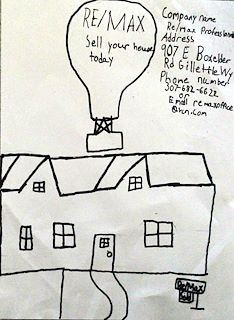 RE/MAX
Sell your house
today
Company name
Re/max Professionals
Address
907 E Boxelder
Rd Gillette Wy
Phone number
307-682-6622
or
Email remaxoffice
@vcn.com
Re/Max